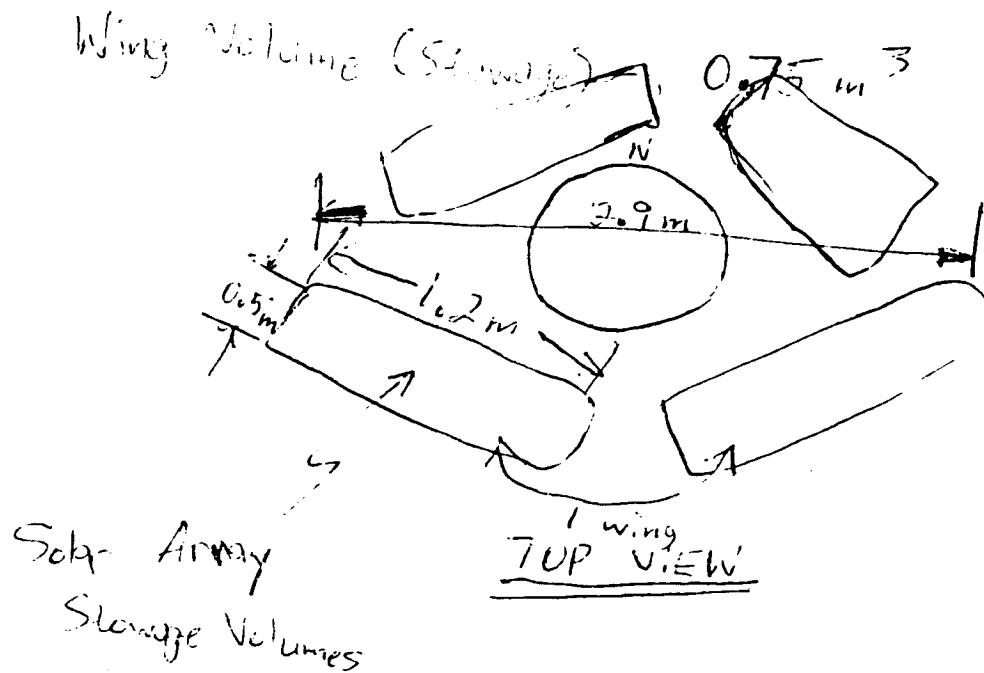 Wing Volume (Stowage) 0.75 m³
N
1.2 m
0.5 m
1 wing
TOP VIEW
Solar Array
Stowage Volumes